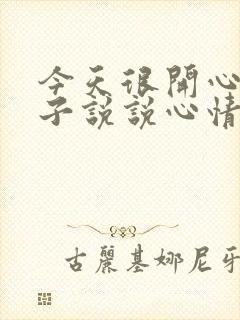 今天很開心
子說說心情
古麗基娜尼牙